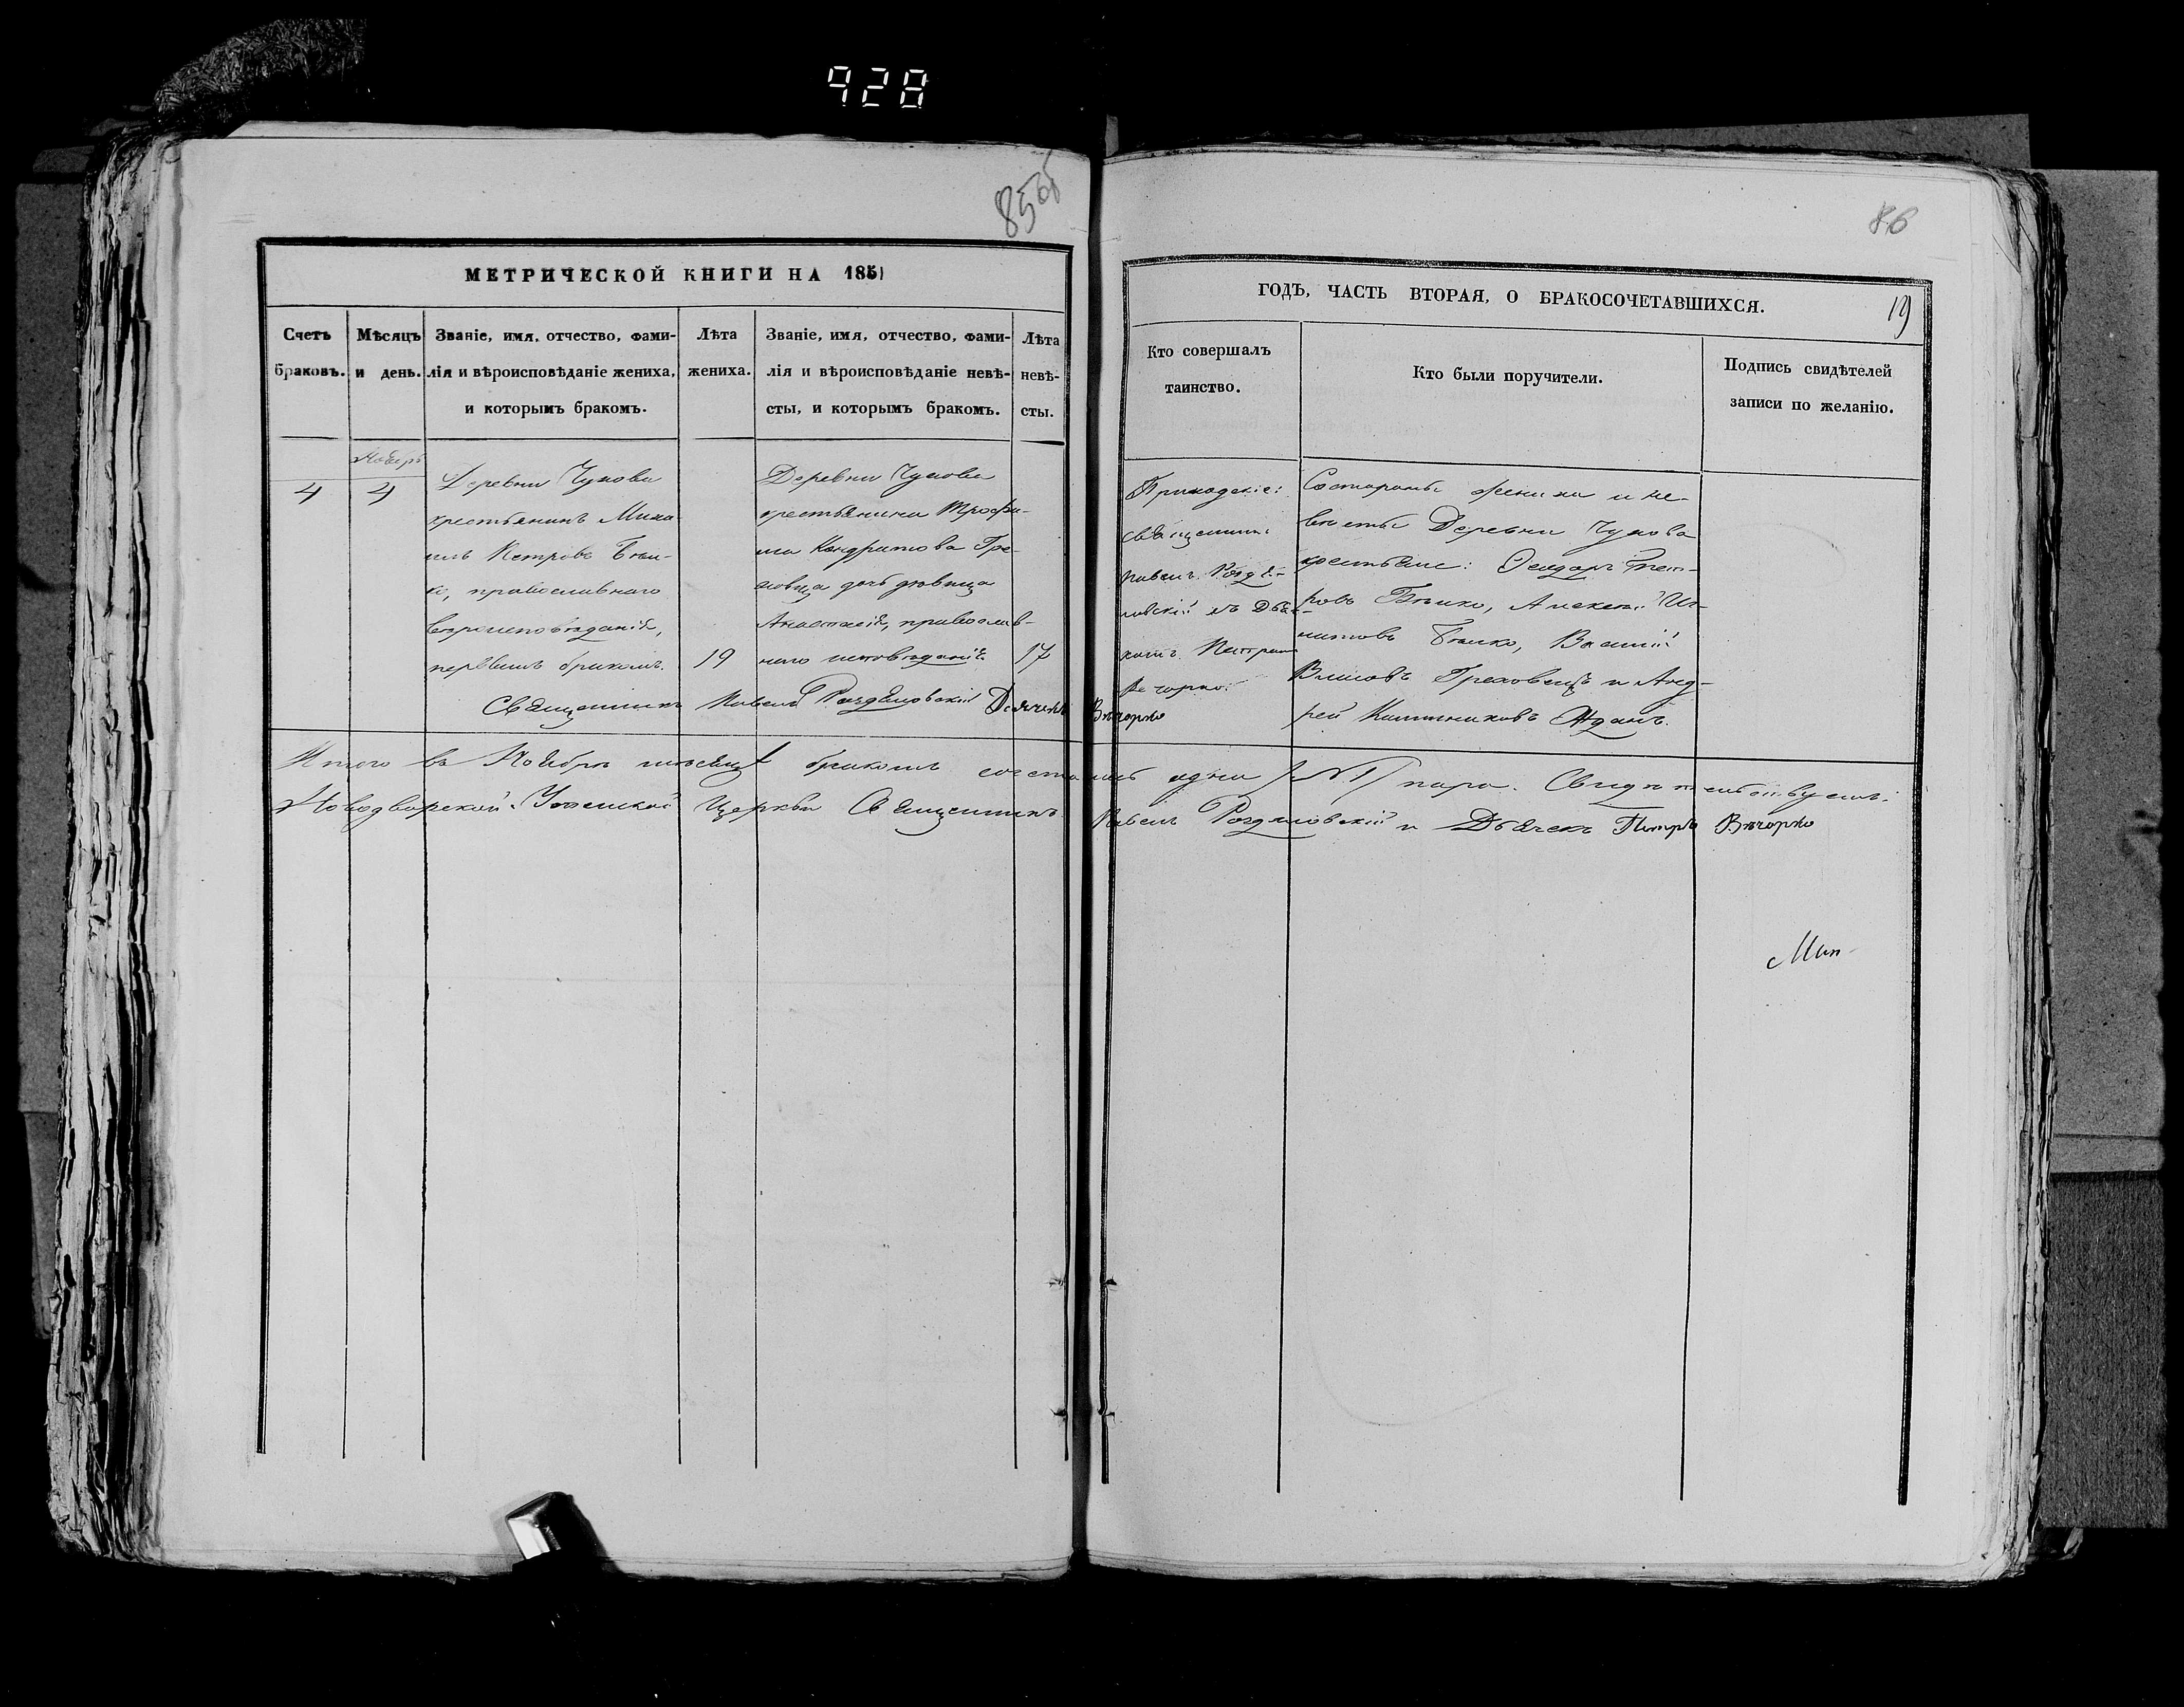 928
85об
86
МЕТРИЧЕСКОЙ КНИГИ НА 1851
ГОДЪ, ЧАСТЬ ВТОРАЯ, О БРАКОСОЧЕТАВШИХСЯ.
19
Счетъ
браковъ.
Мѣсяцъ
и день.
Званіе, имя, отчество, фами-
лія и вѣроисповѣданіе жениха,
и которымъ бракомъ.
Лѣта
жениха.
Званіе, имя, отчество, фами-
лія и вѣроисповѣданіе невѣ-
сты, и которымъ бракомъ.
Лѣта
невѣ-
сты.
Кто совершалъ
таинство.
Кто были поручители.
Подпись свидѣтелей
записи по желанію.
4
4
Деревни Чухова
крестьянинъ Миха-
илъ Петровъ Бѣли-
ко, православнаго
вѣроисповѣданія,
первымъ бракомъ.
19
Деревни Чухова
крестьянина Трофи-
ма Кондратова Гре-
ховца дочь дѣвица
Анастасія, православ-
наго исповѣданія
17
Приходскіе:
священникъ
Павелъ Розде-
ловскій съ Дьяч-
комъ Петромъ
Вечорко.
Состороны жениха и не-
вѣсты Деревни Чухова
крестьяне: Феодоръ Пет-
ровъ Бѣлико, Алексѣй Иг-
натовъ Бѣлико, Василій
Власовъ Греховецъ и Анд-
рей Жданъ.
Священникъ Павелъ Роздяловскій Дьячекъ Вѣчорко
Итого въ Ноябрѣ мѣсяцѣ бракомъ сочетались одна /№ 1/ пара. Свидѣтельствуемъ:
Новодворской Успенской Церкви Священникъ Павелъ Роздяловскій и Дьячекъ Петръ Вѣчорко